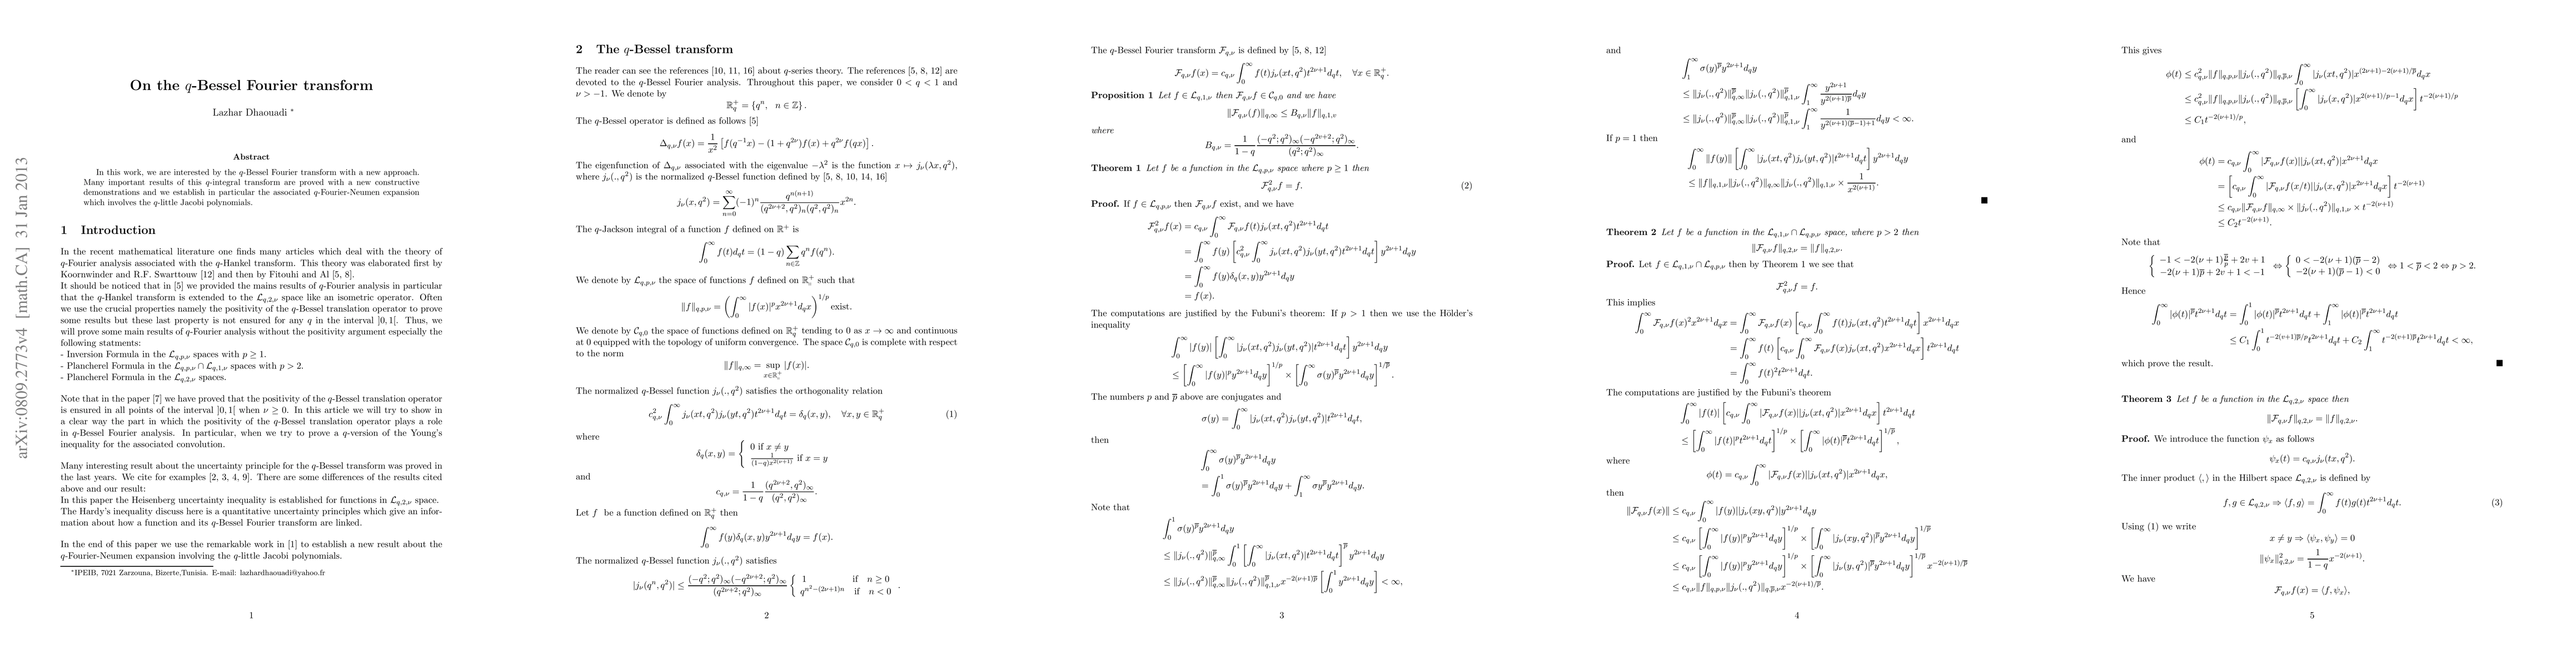 arXiv:0809.2773v4 [math.CA] 31 Jan 2013
On the q-Bessel Fourier transform
Lazhar Dhaouadi *
Abstract
In this work, we are interested by the q-Bessel Fourier transform with a new approach.
Many important results of this q-integral transform are proved with a new constructive
demonstrations and we establish in particular the associated q-Fourier-Neumen expansion
which involves the q-little Jacobi polynomials.
1 Introduction
In the recent mathematical literature one finds many articles which deal with the theory of
q-Fourier analysis associated with the q-Hankel transform. This theory was elaborated first by
Koornwinder and R.F. Swarttouw [12] and then by Fitouhi and Al [5, 8].
It should be noticed that in [5] we provided the mains results of q-Fourier analysis in particular
that the q-Hankel transform is extended to the 𝓛_{q,2,ν} space like an isometric operator. Often
we use the crucial properties namely the positivity of the q-Bessel translation operator to prove
some results but these last property is not ensured for any q in the interval ]0,1[. Thus, we
will prove some main results of q-Fourier analysis without the positivity argument especially the
following statments:
- Inversion Formula in the 𝓛_{q,p,ν} spaces with p ≥ 1.
- Plancherel Formula in the 𝓛_{q,p,ν} ∩ 𝓛_{q,1,ν} spaces with p > 2.
- Plancherel Formula in the 𝓛_{q,2,ν} spaces.
Note that in the paper [7] we have proved that the positivity of the q-Bessel translation operator
is ensured in all points of the interval ]0,1[ when ν ≥ 0. In this article we will try to show in
a clear way the part in which the positivity of the q-Bessel translation operator plays a role
in q-Bessel Fourier analysis. In particular, when we try to prove a q-version of the Young's
inequality for the associated convolution.
Many interesting result about the uncertainty principle for the q-Bessel transform was proved in
the last years. We cite for examples [2, 3, 4, 9]. There are some differences of the results cited
above and our result:
In this paper the Heisenberg uncertainty inequality is established for functions in 𝓛_{q,2,ν} space.
The Hardy's inequality discuss here is a quantitative uncertainty principles which give an infor-
mation about how a function and its q-Bessel Fourier transform are linked.
In the end of this paper we use the remarkable work in [1] to establish a new result about the
q-Fourier-Neumen expansion involving the q-little Jacobi polynomials.
*IPEIB, 7021 Zarzouna, Bizerte,Tunisia. E-mail: lazhardhaouadi@yahoo.fr
1
2 The q-Bessel transform
The reader can see the references [10, 11, 16] about q-series theory. The references [5, 8, 12] are
devoted to the q-Bessel Fourier analysis. Throughout this paper, we consider 0 < q < 1 and
ν > −1. We denote by
ℝ_q^+ = {q^n, n ∈ ℤ}.
The q-Bessel operator is defined as follows [5]
Δ_{q,ν}f(x) = 1/x^2 [f(q^{-1}x) − (1 + q^{2ν})f(x) + q^{2ν}f(qx)].
The eigenfunction of Δ_{q,ν} associated with the eigenvalue −λ^2 is the function x ↦ j_ν(λx, q^2),
where j_ν(., q^2) is the normalized q-Bessel function defined by [5, 8, 10, 14, 16]
j_ν(x, q^2) = ∑_{n=0}^∞ (−1)^n q^{n(n+1)} / ((q^{2ν+2}, q^2)_n (q^2, q^2)_n) x^{2n}.
The q-Jackson integral of a function f defined on ℝ_q^+ is
∫_0^∞ f(t)d_qt = (1 − q) ∑_{n∈ℤ} q^n f(q^n).
We denote by 𝓛_{q,p,ν} the space of functions f defined on ℝ_q^+ such that
‖f‖_{q,p,ν} = (∫_0^∞ |f(x)|^p x^{2ν+1} d_qx)^{1/p} exist.
We denote by 𝓒_{q,0} the space of functions defined on ℝ_q^+ tending to 0 as x → ∞ and continuous
at 0 equipped with the topology of uniform convergence. The space 𝓒_{q,0} is complete with respect
to the norm
‖f‖_{q,∞} = sup_{x∈ℝ_q^+} |f(x)|.
The normalized q-Bessel function j_ν(., q^2) satisfies the orthogonality relation
c_{q,ν}^2 ∫_0^∞ j_ν(xt, q^2)j_ν(yt, q^2)t^{2ν+1}d_qt = δ_q(x, y), ∀x, y ∈ ℝ_q^+ (1)
where
δ_q(x, y) = { 0 if x ≠ y
1/((1−q)x^{2(ν+1)}) if x = y
and
c_{q,ν} = 1/(1 − q) (q^{2ν+2}, q^2)_∞ / (q^2, q^2)_∞.
Let f be a function defined on ℝ_q^+ then
∫_0^∞ f(y)δ_q(x, y)y^{2ν+1}d_qy = f(x).
The normalized q-Bessel function j_ν(., q^2) satisfies
|j_ν(q^n, q^2)| ≤ (−q^2; q^2)_∞(−q^{2ν+2}; q^2)_∞ / (q^{2ν+2}; q^2)_∞ { 1 if n ≥ 0
q^{n^2−(2ν+1)n} if n < 0 .
2
The q-Bessel Fourier transform 𝓕_{q,ν} is defined by [5, 8, 12]
𝓕_{q,ν}f(x) = c_{q,ν} ∫_0^∞ f(t)j_ν(xt, q^2)t^{2ν+1}d_qt, ∀x ∈ ℝ_q^+.
Proposition 1 Let f ∈ 𝓛_{q,1,ν} then 𝓕_{q,ν}f ∈ 𝓒_{q,0} and we have
‖𝓕_{q,ν}(f)‖_{q,∞} ≤ B_{q,ν}‖f‖_{q,1,ν}
where
B_{q,ν} = 1/(1 − q) (−q^2; q^2)_∞(−q^{2ν+2}; q^2)_∞ / (q^2; q^2)_∞.
Theorem 1 Let f be a function in the 𝓛_{q,p,ν} space where p ≥ 1 then
𝓕_{q,ν}^2 f = f. (2)
Proof. If f ∈ 𝓛_{q,p,ν} then 𝓕_{q,ν}f exist, and we have
𝓕_{q,ν}^2 f(x) = c_{q,ν} ∫_0^∞ 𝓕_{q,ν}f(t)j_ν(xt, q^2)t^{2ν+1}d_qt
= ∫_0^∞ f(y) [c_{q,ν}^2 ∫_0^∞ j_ν(xt, q^2)j_ν(yt, q^2)t^{2ν+1}d_qt] y^{2ν+1}d_qy
= ∫_0^∞ f(y)δ_q(x, y)y^{2ν+1}d_qy
= f(x).
The computations are justified by the Fubuni's theorem: If p > 1 then we use the Hölder's
inequality
∫_0^∞ |f(y)| [∫_0^∞ |j_ν(xt, q^2)j_ν(yt, q^2)|t^{2ν+1}d_qt] y^{2ν+1}d_qy
≤ [∫_0^∞ |f(y)|^p y^{2ν+1}d_qy]^{1/p} × [∫_0^∞ σ(y)^{p̄} y^{2ν+1}d_qy]^{1/p̄}.
The numbers p and p̄ above are conjugates and
σ(y) = ∫_0^∞ |j_ν(xt, q^2)j_ν(yt, q^2)|t^{2ν+1}d_qt,
then
∫_0^∞ σ(y)^{p̄} y^{2ν+1}d_qy
= ∫_0^1 σ(y)^{p̄} y^{2ν+1}d_qy + ∫_1^∞ σy^{p̄} y^{2ν+1}d_qy.
Note that
∫_0^1 σ(y)^{p̄} y^{2ν+1}d_qy
≤ ‖j_ν(., q^2)‖_{q,∞}^{p̄} ∫_0^1 [∫_0^∞ |j_ν(xt, q^2)|t^{2ν+1}d_qt]^{p̄} y^{2ν+1}d_qy
≤ ‖j_ν(., q^2)‖_{q,∞}^{p̄} ‖j_ν(., q^2)‖_{q,1,ν}^{p̄} x^{−2(ν+1)p̄} [∫_0^1 y^{2ν+1}d_qy] < ∞,
3
and
∫_1^∞ σ(y)^{p̄} y^{2ν+1}d_qy
≤ ‖j_ν(., q^2)‖_{q,∞}^{p̄} ‖j_ν(., q^2)‖_{q,1,ν}^{p̄} ∫_1^∞ y^{2ν+1} / y^{2(ν+1)p̄} d_qy
≤ ‖j_ν(., q^2)‖_{q,∞}^{p̄} ‖j_ν(., q^2)‖_{q,1,ν}^{p̄} ∫_1^∞ 1 / y^{2(ν+1)(p̄−1)+1} d_qy < ∞.
If p = 1 then
∫_0^∞ ‖f(y)‖ [∫_0^∞ |j_ν(xt, q^2)j_ν(yt, q^2)|t^{2ν+1}d_qt] y^{2ν+1}d_qy
≤ ‖f‖_{q,1,ν}‖j_ν(., q^2)‖_{q,∞}‖j_ν(., q^2)‖_{q,1,ν} × 1/x^{2(ν+1)}.
■
Theorem 2 Let f be a function in the 𝓛_{q,1,ν} ∩ 𝓛_{q,p,ν} space, where p > 2 then
‖𝓕_{q,ν}f‖_{q,2,ν} = ‖f‖_{q,2,ν}.
Proof. Let f ∈ 𝓛_{q,1,ν} ∩ 𝓛_{q,p,ν} then by Theorem 1 we see that
𝓕_{q,ν}^2 f = f.
This implies
∫_0^∞ 𝓕_{q,ν}f(x)^2 x^{2ν+1}d_qx = ∫_0^∞ 𝓕_{q,ν}f(x) [c_{q,ν} ∫_0^∞ f(t)j_ν(xt, q^2)t^{2ν+1}d_qt] x^{2ν+1}d_qx
= ∫_0^∞ f(t) [c_{q,ν} ∫_0^∞ 𝓕_{q,ν}f(x)j_ν(xt, q^2)x^{2ν+1}d_qx] t^{2ν+1}d_qt
= ∫_0^∞ f(t)^2 t^{2ν+1}d_qt.
The computations are justified by the Fubuni's theorem
∫_0^∞ |f(t)| [c_{q,ν} ∫_0^∞ |𝓕_{q,ν}f(x)||j_ν(xt, q^2)|x^{2ν+1}d_qx] t^{2ν+1}d_qt
≤ [∫_0^∞ |f(t)|^p t^{2ν+1}d_qt]^{1/p} × [∫_0^∞ |ϕ(t)|^{p̄} t^{2ν+1}d_qt]^{1/p̄},
where
ϕ(t) = c_{q,ν} ∫_0^∞ |𝓕_{q,ν}f(x)||j_ν(xt, q^2)|x^{2ν+1}d_qx,
then
‖𝓕_{q,ν}f(x)‖ ≤ c_{q,ν} ∫_0^∞ |f(y)||j_ν(xy, q^2)|y^{2ν+1}d_qy
≤ c_{q,ν} [∫_0^∞ |f(y)|^p y^{2ν+1}d_qy]^{1/p} × [∫_0^∞ |j_ν(xy, q^2)|^{p̄} y^{2ν+1}d_qy]^{1/p̄}
≤ c_{q,ν} [∫_0^∞ |f(y)|^p y^{2ν+1}d_qy]^{1/p} × [∫_0^∞ |j_ν(y, q^2)|^{p̄} y^{2ν+1}d_qy]^{1/p̄} x^{−2(ν+1)/p̄}
≤ c_{q,ν}‖f‖_{q,p,ν}‖j_ν(., q^2)‖_{q,p̄,ν} x^{−2(ν+1)/p̄}.
4
This gives
ϕ(t) ≤ c_{q,ν}^2 ‖f‖_{q,p,ν}‖j_ν(., q^2)‖_{q,p̄,ν} ∫_0^∞ |j_ν(xt, q^2)|x^{(2ν+1)−2(ν+1)/p̄}d_qx
≤ c_{q,ν}^2 ‖f‖_{q,p,ν}‖j_ν(., q^2)‖_{q,p̄,ν} [∫_0^∞ |j_ν(x, q^2)|x^{2(ν+1)/p−1}d_qx] t^{−2(ν+1)/p}
≤ C_1 t^{−2(ν+1)/p},
and
ϕ(t) = c_{q,ν} ∫_0^∞ |𝓕_{q,ν}f(x)||j_ν(xt, q^2)|x^{2ν+1}d_qx
= [c_{q,ν} ∫_0^∞ |𝓕_{q,ν}f(x/t)||j_ν(x, q^2)|x^{2ν+1}d_qx] t^{−2(ν+1)}
≤ c_{q,ν}‖𝓕_{q,ν}f‖_{q,∞} × ‖j_ν(., q^2)‖_{q,1,ν} × t^{−2(ν+1)}
≤ C_2 t^{−2(ν+1)}.
Note that
{ −1 < −2(ν + 1)p̄/p + 2ν + 1 ⇔ { 0 < −2(ν + 1)(p̄ − 2) ⇔ 1 < p̄ < 2 ⇔ p > 2.
−2(ν + 1)p̄ + 2ν + 1 < −1 −2(ν + 1)(p̄ − 1) < 0
Hence
∫_0^∞ |ϕ(t)|^{p̄} t^{2ν+1}d_qt = ∫_0^1 |ϕ(t)|^{p̄} t^{2ν+1}d_qt + ∫_1^∞ |ϕ(t)|^{p̄} t^{2ν+1}d_qt
≤ C_1 ∫_0^1 t^{−2(ν+1)p̄/p} t^{2ν+1}d_qt + C_2 ∫_1^∞ t^{−2(ν+1)p̄} t^{2ν+1}d_qt < ∞,
which prove the result. ■
Theorem 3 Let f be a function in the 𝓛_{q,2,ν} space then
‖𝓕_{q,ν}f‖_{q,2,ν} = ‖f‖_{q,2,ν}.
Proof. We introduce the function ψ_x as follows
ψ_x(t) = c_{q,ν}j_ν(tx, q^2).
The inner product ⟨,⟩ in the Hilbert space 𝓛_{q,2,ν} is defined by
f, g ∈ 𝓛_{q,2,ν} ⇒ ⟨f, g⟩ = ∫_0^∞ f(t)g(t)t^{2ν+1}d_qt. (3)
Using (1) we write
x ≠ y ⇒ ⟨ψ_x, ψ_y⟩ = 0
‖ψ_x‖_{q,2,ν}^2 = 1/(1 − q) x^{−2(ν+1)}.
We have
𝓕_{q,ν}f(x) = ⟨f, ψ_x⟩,
5